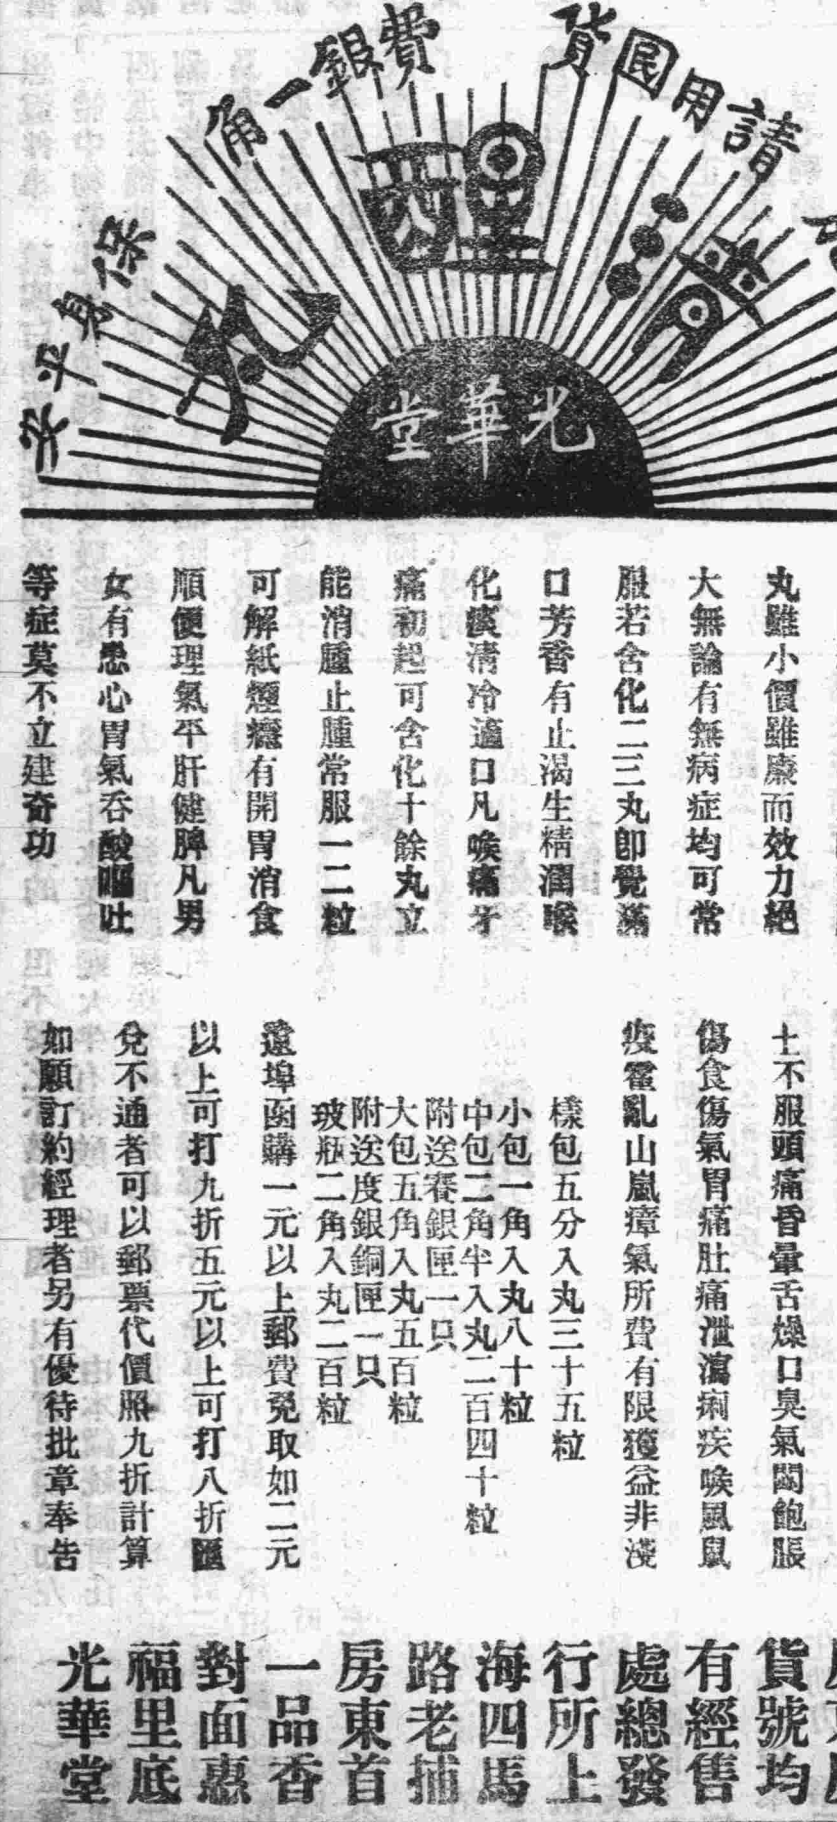 請用國貨
費銀一角
保身平安
清醒丸
光華堂
丸雖小價雖廉而效力絕
大無論有無病症均可常
服若含化二三丸卽覺滿
口芳香有止渴生精潤喉
化痰清冷適口凡喉痛牙
痛初起可含化十餘丸立
能消腫止腫常服一二粒
可解紙煙癮有開胃消食
順便理氣平肝健脾凡男
女有患心胃氣吞酸嘔吐
等症莫不立建奇功
土不服頭痛昏暈舌燥口臭氣悶飽脹
傷食傷氣胃痛肚痛泄瀉痢疾喉風鼠
疫霍亂山嵐瘴氣所費有限獲益非淺
樣包五分入丸三十五粒
小包一角入丸八十粒
中包二角半入丸二百四十粒
附送賽銀匣一只
大包五角入丸五百粒
附送度銀銅匣一只
玻瓶二角入丸二百粒
遠埠函購一元以上郵費免取如二元
以上可打九折五元以上可打八折匯
兌不通者可以郵票代價照九折計算
如願訂約經理者另有優待批章奉告
貨號均
有經售
處總發
行所上
海四馬
路老捕
房東首
一品香
對面惠
福里底
光華堂